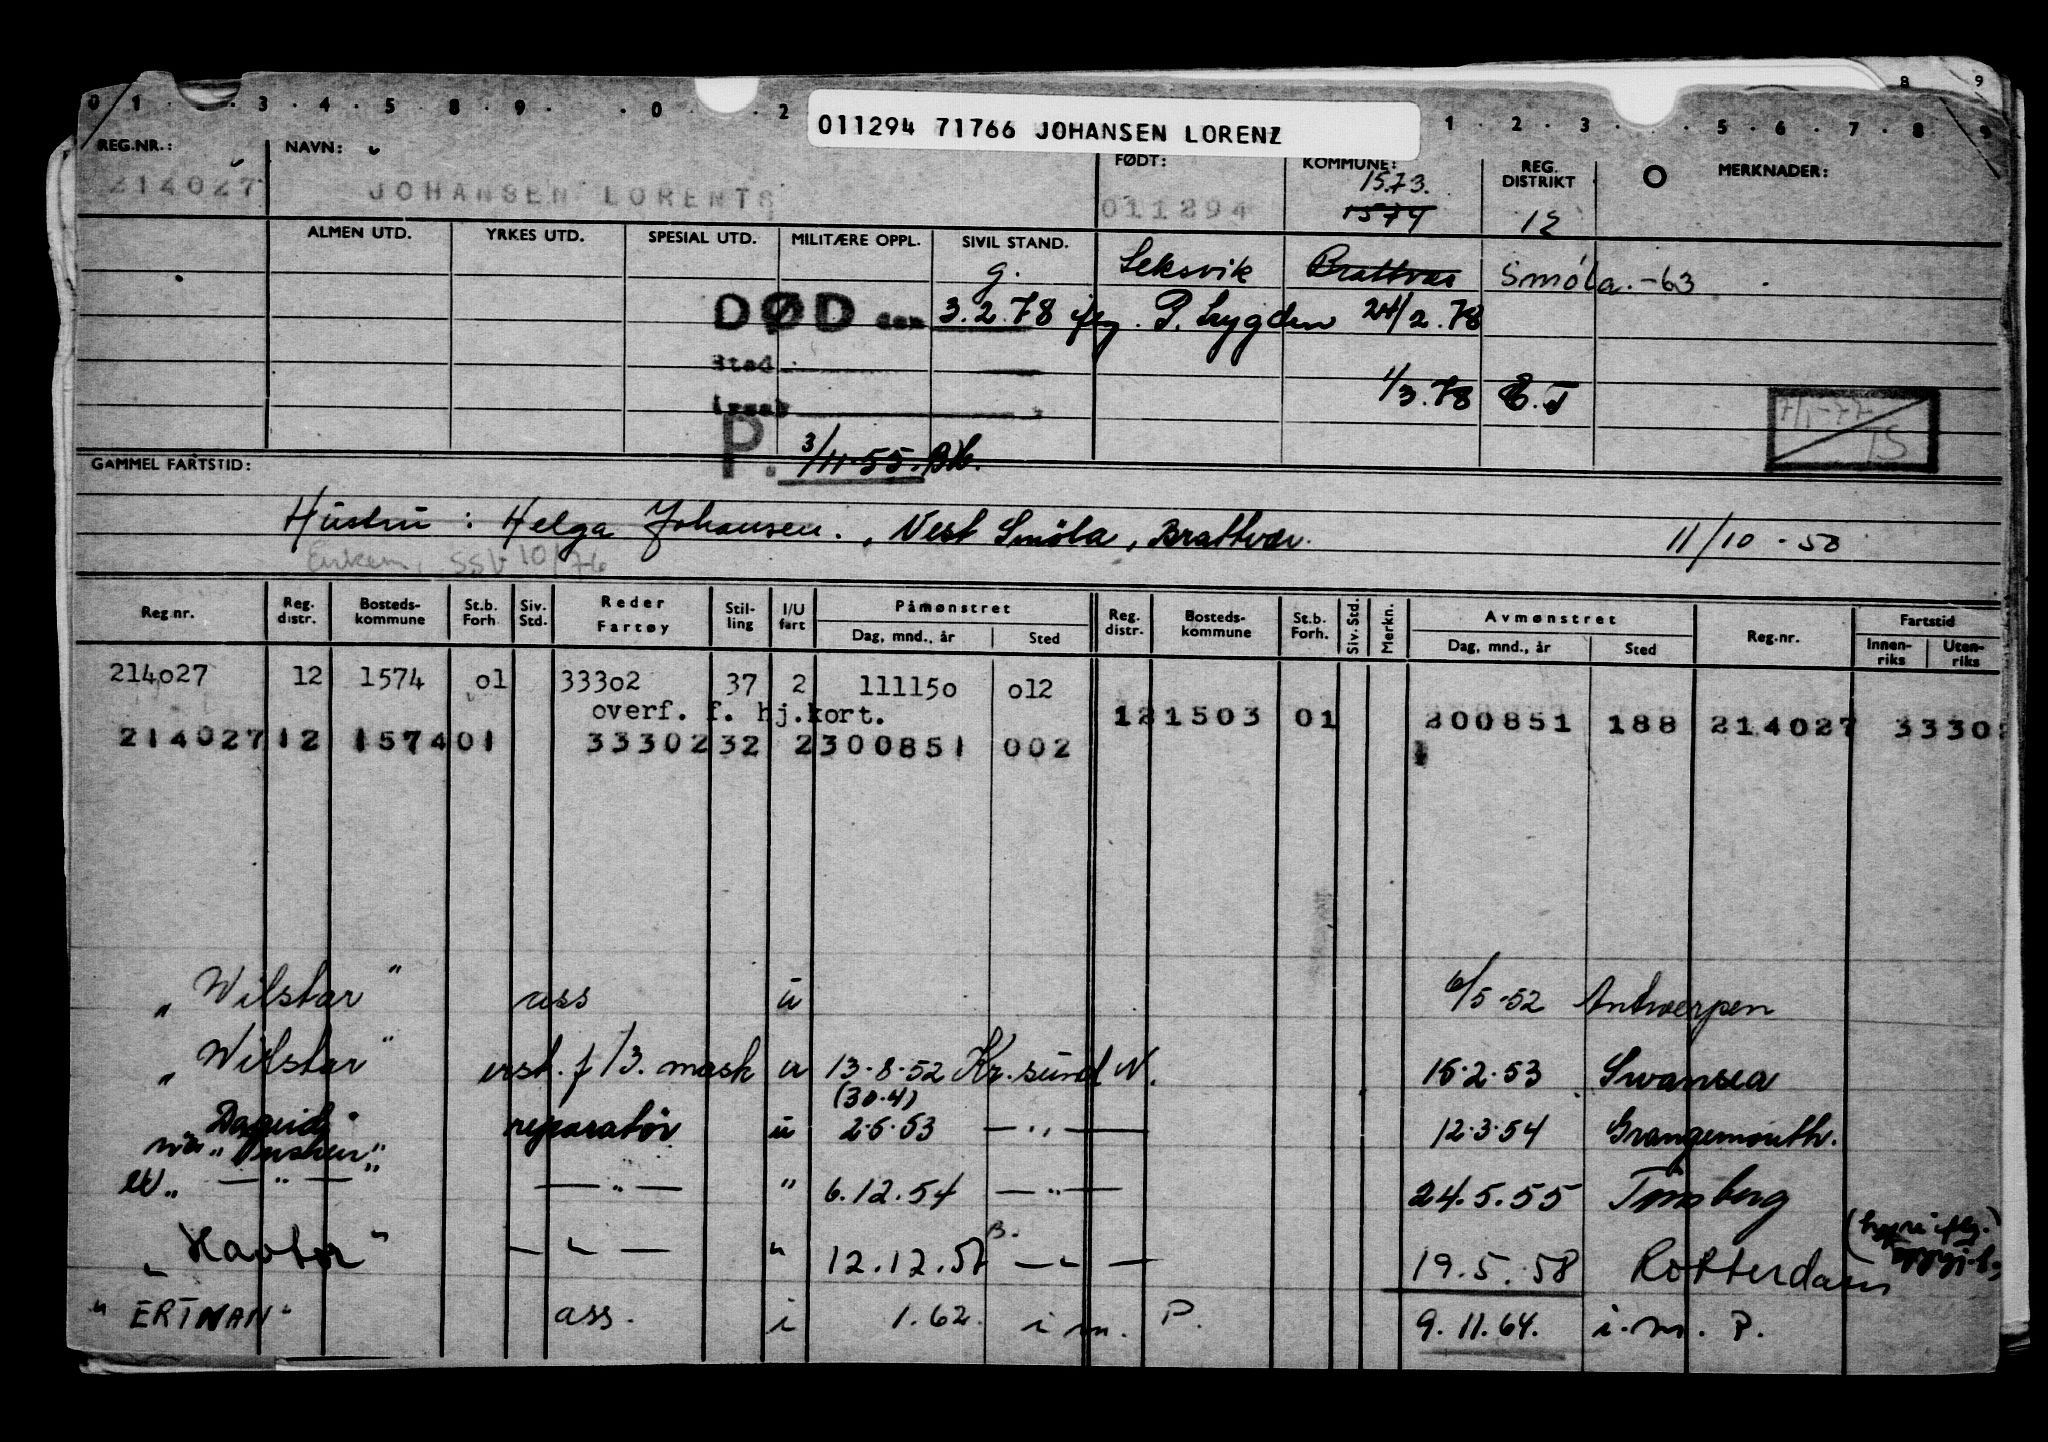 8 9
0 1 . . 3 . 4 . 5 . 8 . 9 . . 0 . 2 1 . 2 . 3 . . . 5 . 6 . 7 . 8 . 9
011294 71766 JOHANSEN LORENZ
REG.NR.: NAVN: FØDT: KOMMUNE: REG. DISTRIKT MERKNADER:
1573.
214027 JOHANSEN LORENTS 011294 1574 12
ALMEN UTD. YRKES UTD. SPESIAL UTD. MILITÆRE OPPL. SIVIL STAND.
g. Leksvik Brattvær Smøla.-63
DØD den 3.2.78 iflg. P. 24/2.78
Sted
1/3.78 E.T
7/1-77 TS
P. 3/11.55.
GAMMEL FARTSTID:
Hustru : Helga Johansen., Vest Smøla, Brattvær. 11/10.50
Enkem, SSV 10/76
Reg.nr. Reg. distr. Bosteds-kommune St.b. Forh. Siv. Std. Reder Fartøy Stil-ling I/U fart Påmønstret Dag, mnd., år Sted Reg. distr. Bosteds-kommune St.b. Forh. Siv. Std. Merkn. Avmønstret Dag, mnd., år Sted Reg.nr. Fartstid Innen-riks Uten-riks
214027 12 1574 01 33302 37 2 111150 012
overf. f. hj.kort. 121503 01 200851 188 214027 3330
214027 12 1574 01 33302 32 2 300851 002
"Wilstar" ass u 6/5-52 Antwerpen
"Wilstar" erst. f /3. mask u 13-8-52 Kr.sund N. 15.2.53 Swansea
(30.4)
Dageid reparatør u 2.5.53 — " — 12.3.54 Grangemouth.
nå
" — " — " — " — " 6.12.54 — " — 24.5.55 Tønsberg
"Havtor" — " — " 12.12.57 — " — 19.5.58 Rotterdam
"ERTNAN" ass. i 1.62. i.m. P. 9.11.64. i.m. P.